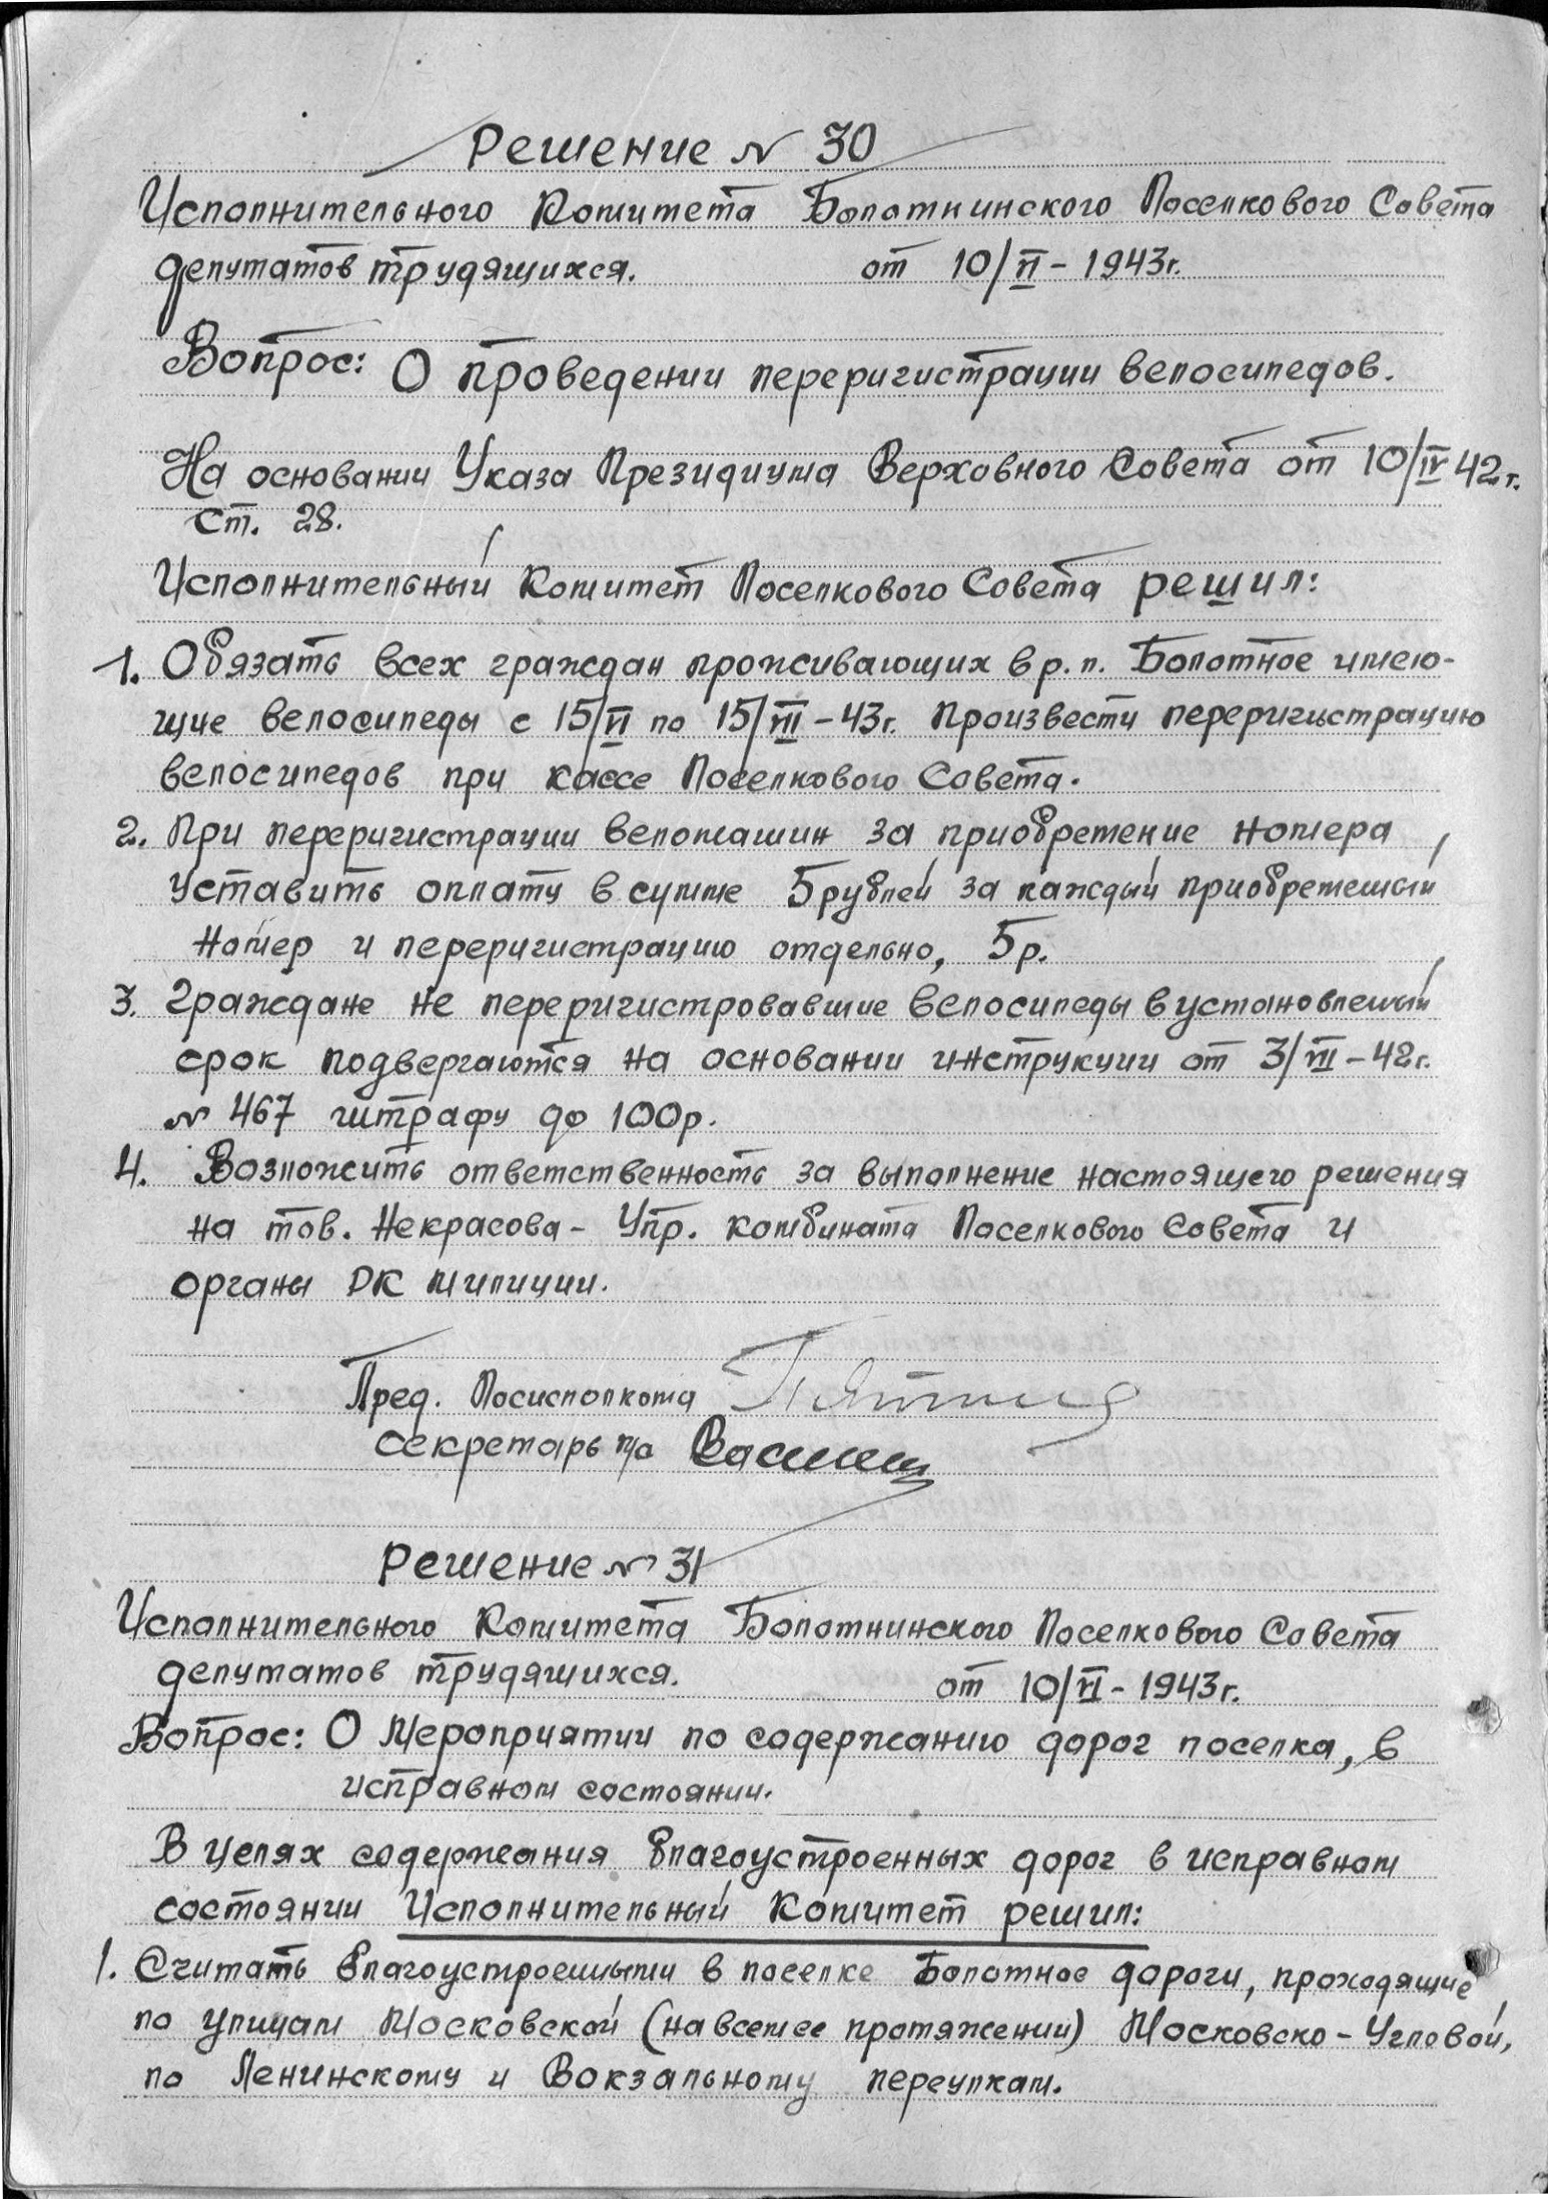 Решение № 30
Исполнительного Комитета Болотнинского Поселкового Совета
депутатов трудящихся. от 10/VI - 1943г.
Вопрос: О проведении переригистрации велосипедов.
На основании Указа Президиума Верховного Совета от 10/IV 42г.
ст. 28.
Исполнительный Комитет Поселкового Совета решил:
1. Обязать всех граждан проживающих в р.п. Болотное имею-
щие велосипеды с 15/VI по 15/VII - 43г. произвести переригистрацию
велосипедов при кассе Поселкового Совета.
2. При переригистрации веломашин за приобретение номера
уставить оплату в сумме 5 рублей за каждый приобретеный
номер и переригистрацию отдельно, 5р.
3. Граждане не переригистровавшие велосипеды в установленый
срок подвергаются на основании инструкции от 3/VII - 42г.
№ 467 штрафу до 100р.
4. Возложить ответственность за выполнение настоящего решения
на тов. Некрасова - Упр. комбината Поселкового Совета и
органы РК милиции.
Пред. Посисполкома
Секретарь п/с
Решение № 31
Исполнительного Комитета Болотнинского Поселкового Совета
депутатов трудящихся. от 10/VI - 1943г.
Вопрос: О Мероприятии по содержанию дорог поселка, в
исправном состоянии.
В целях содержания благоустроенных дорог в исправном
состоянии Исполнительный Комитет решил:
1. Считать благоустроеными в поселке Болотное дороги, проходящие
по улицам Московской (на всем ее протяжении) Московско - Угловой,
по Ленинскому и Вокзальному переулкам.